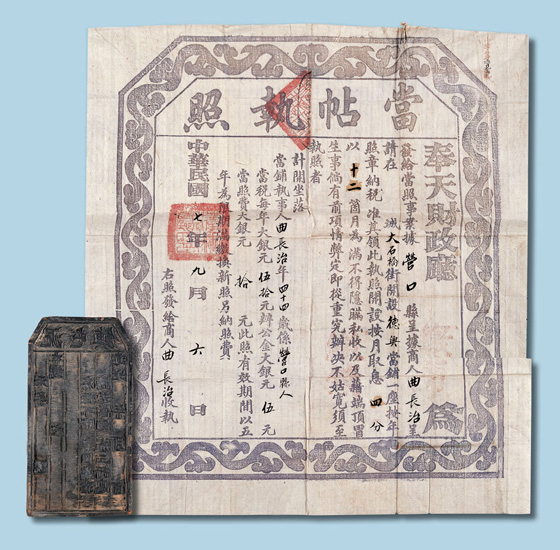 當帖執照
奉天財政廳 為
發給當照事案據 營口 縣呈據商人 曲長治 呈
請在 城 大石橋街開設 德興 當鋪一座按年
照章納稅 准並領此執照開設按月取息 四分
以 十二 箇月為滿不得隱瞞私收以及藉端頂冒
生事倘有前項情弊定即從重究辦決不姑寬須至
執照者
計開坐落
當鋪執事人 曲長治 年 四十四 歲係 營口縣人
當稅每年大銀元 伍拾 元辦公金大銀元 伍 元
當照費大銀元 拾 元此照有效期間以五
年為限 換新照另納照費
中華民國 七 年 九 月 六 日
右照發給商人 曲長治 收執